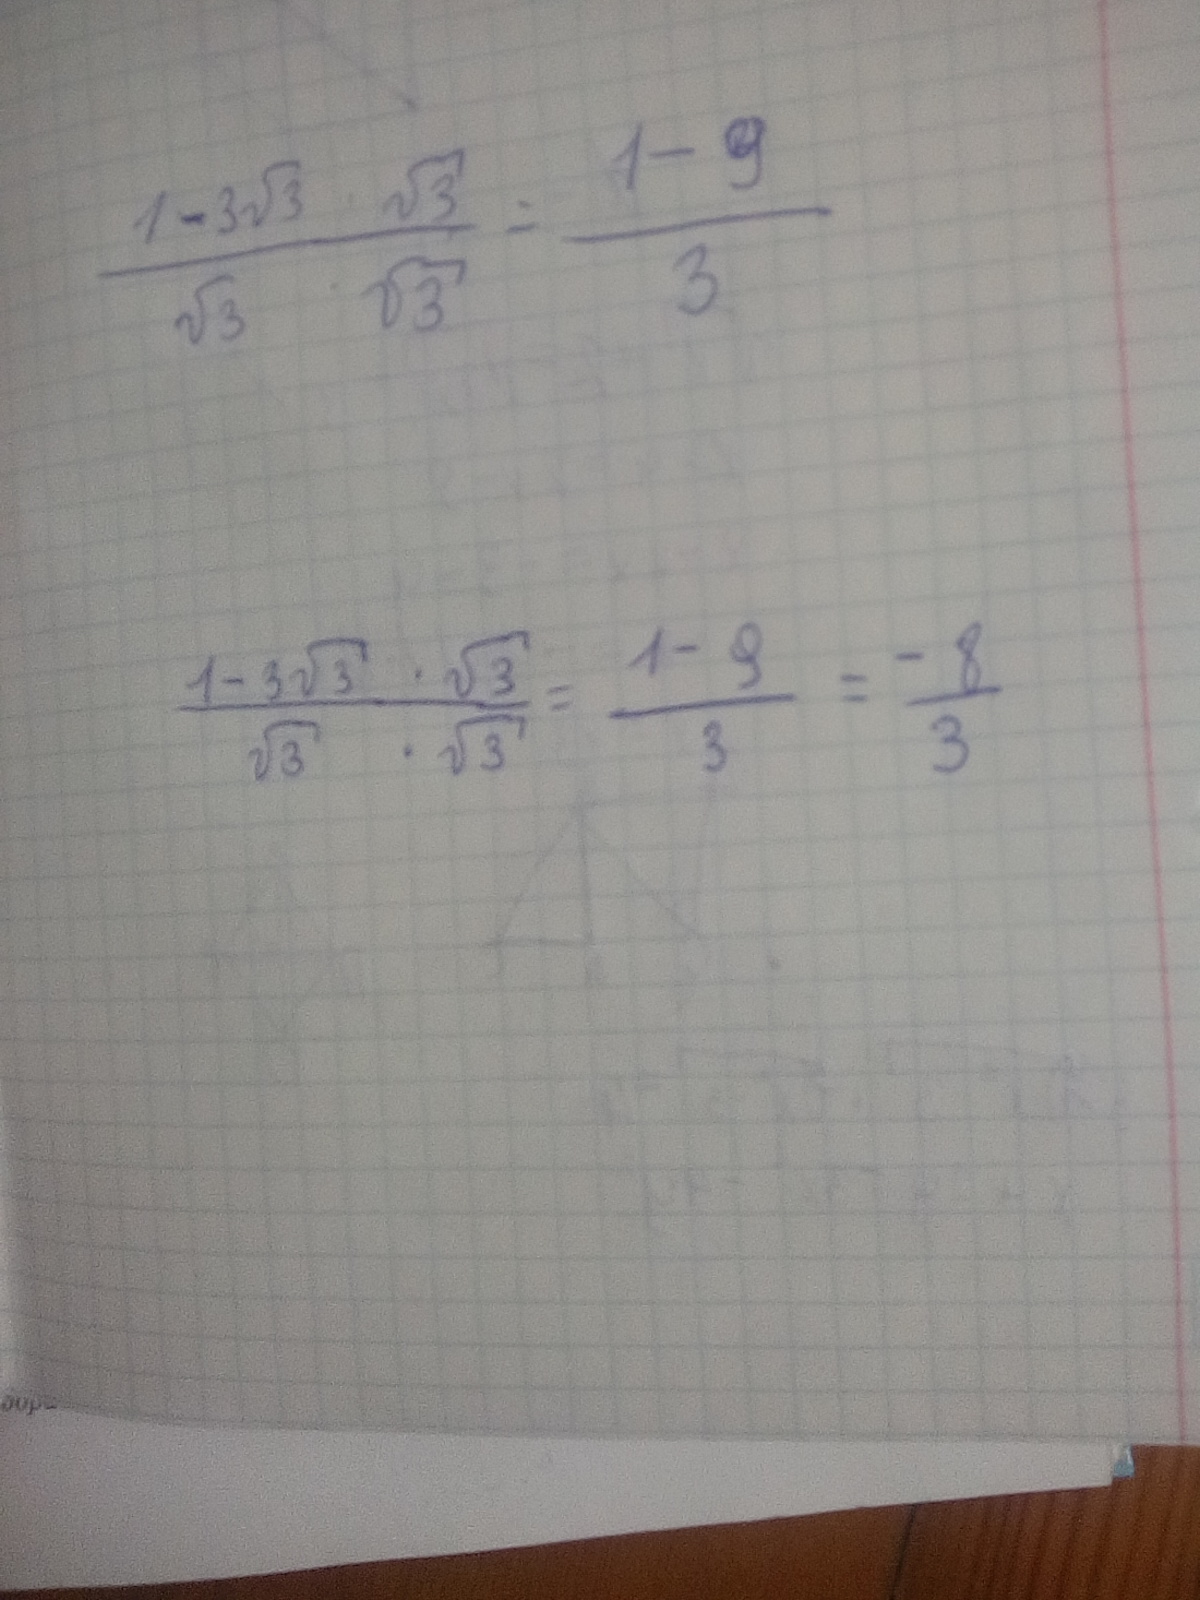 1-3√3 · √3 / √3 · √3 = 1-9 / 3
1-3√3 · √3 / √3 · √3 = 1-9 / 3 = -8 / 3